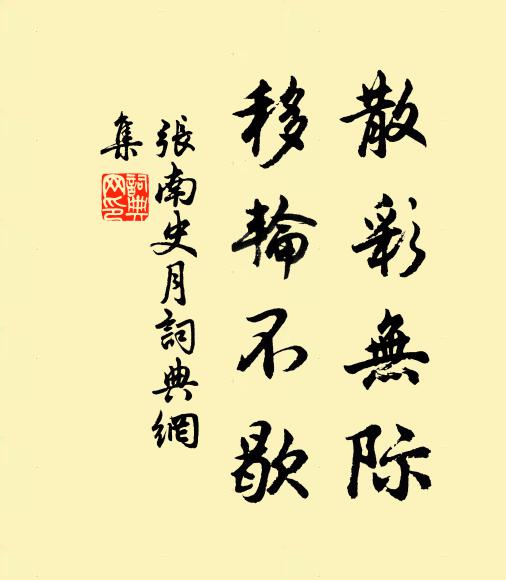 散彩無际
移輪不歇
張南史月詞典網
集
詞典網印